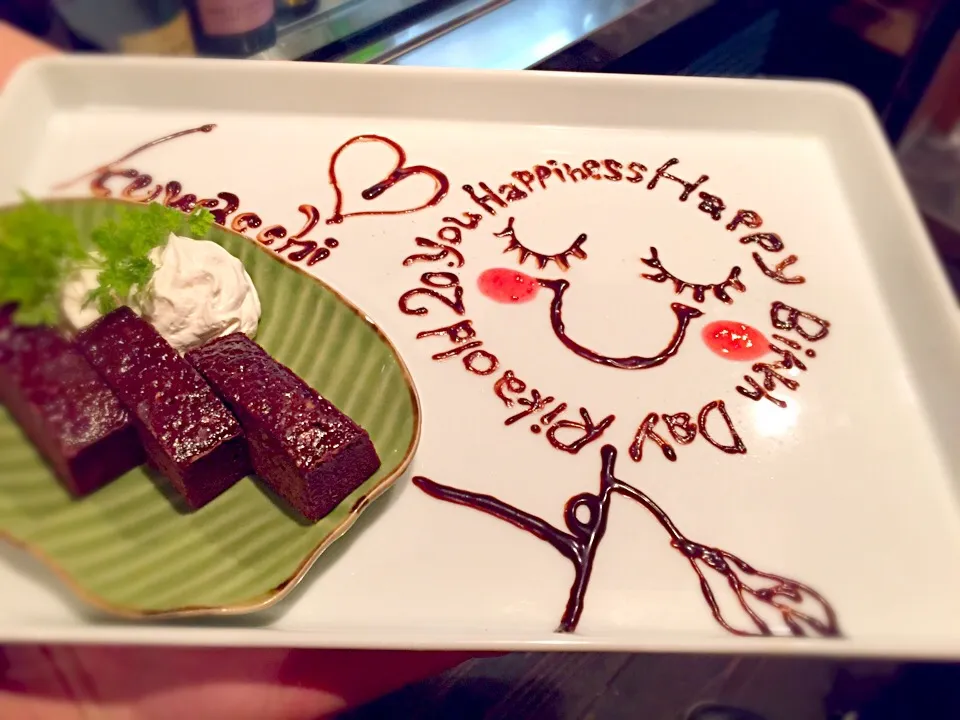 Happy Birth Day Rika old 20.you Happiness